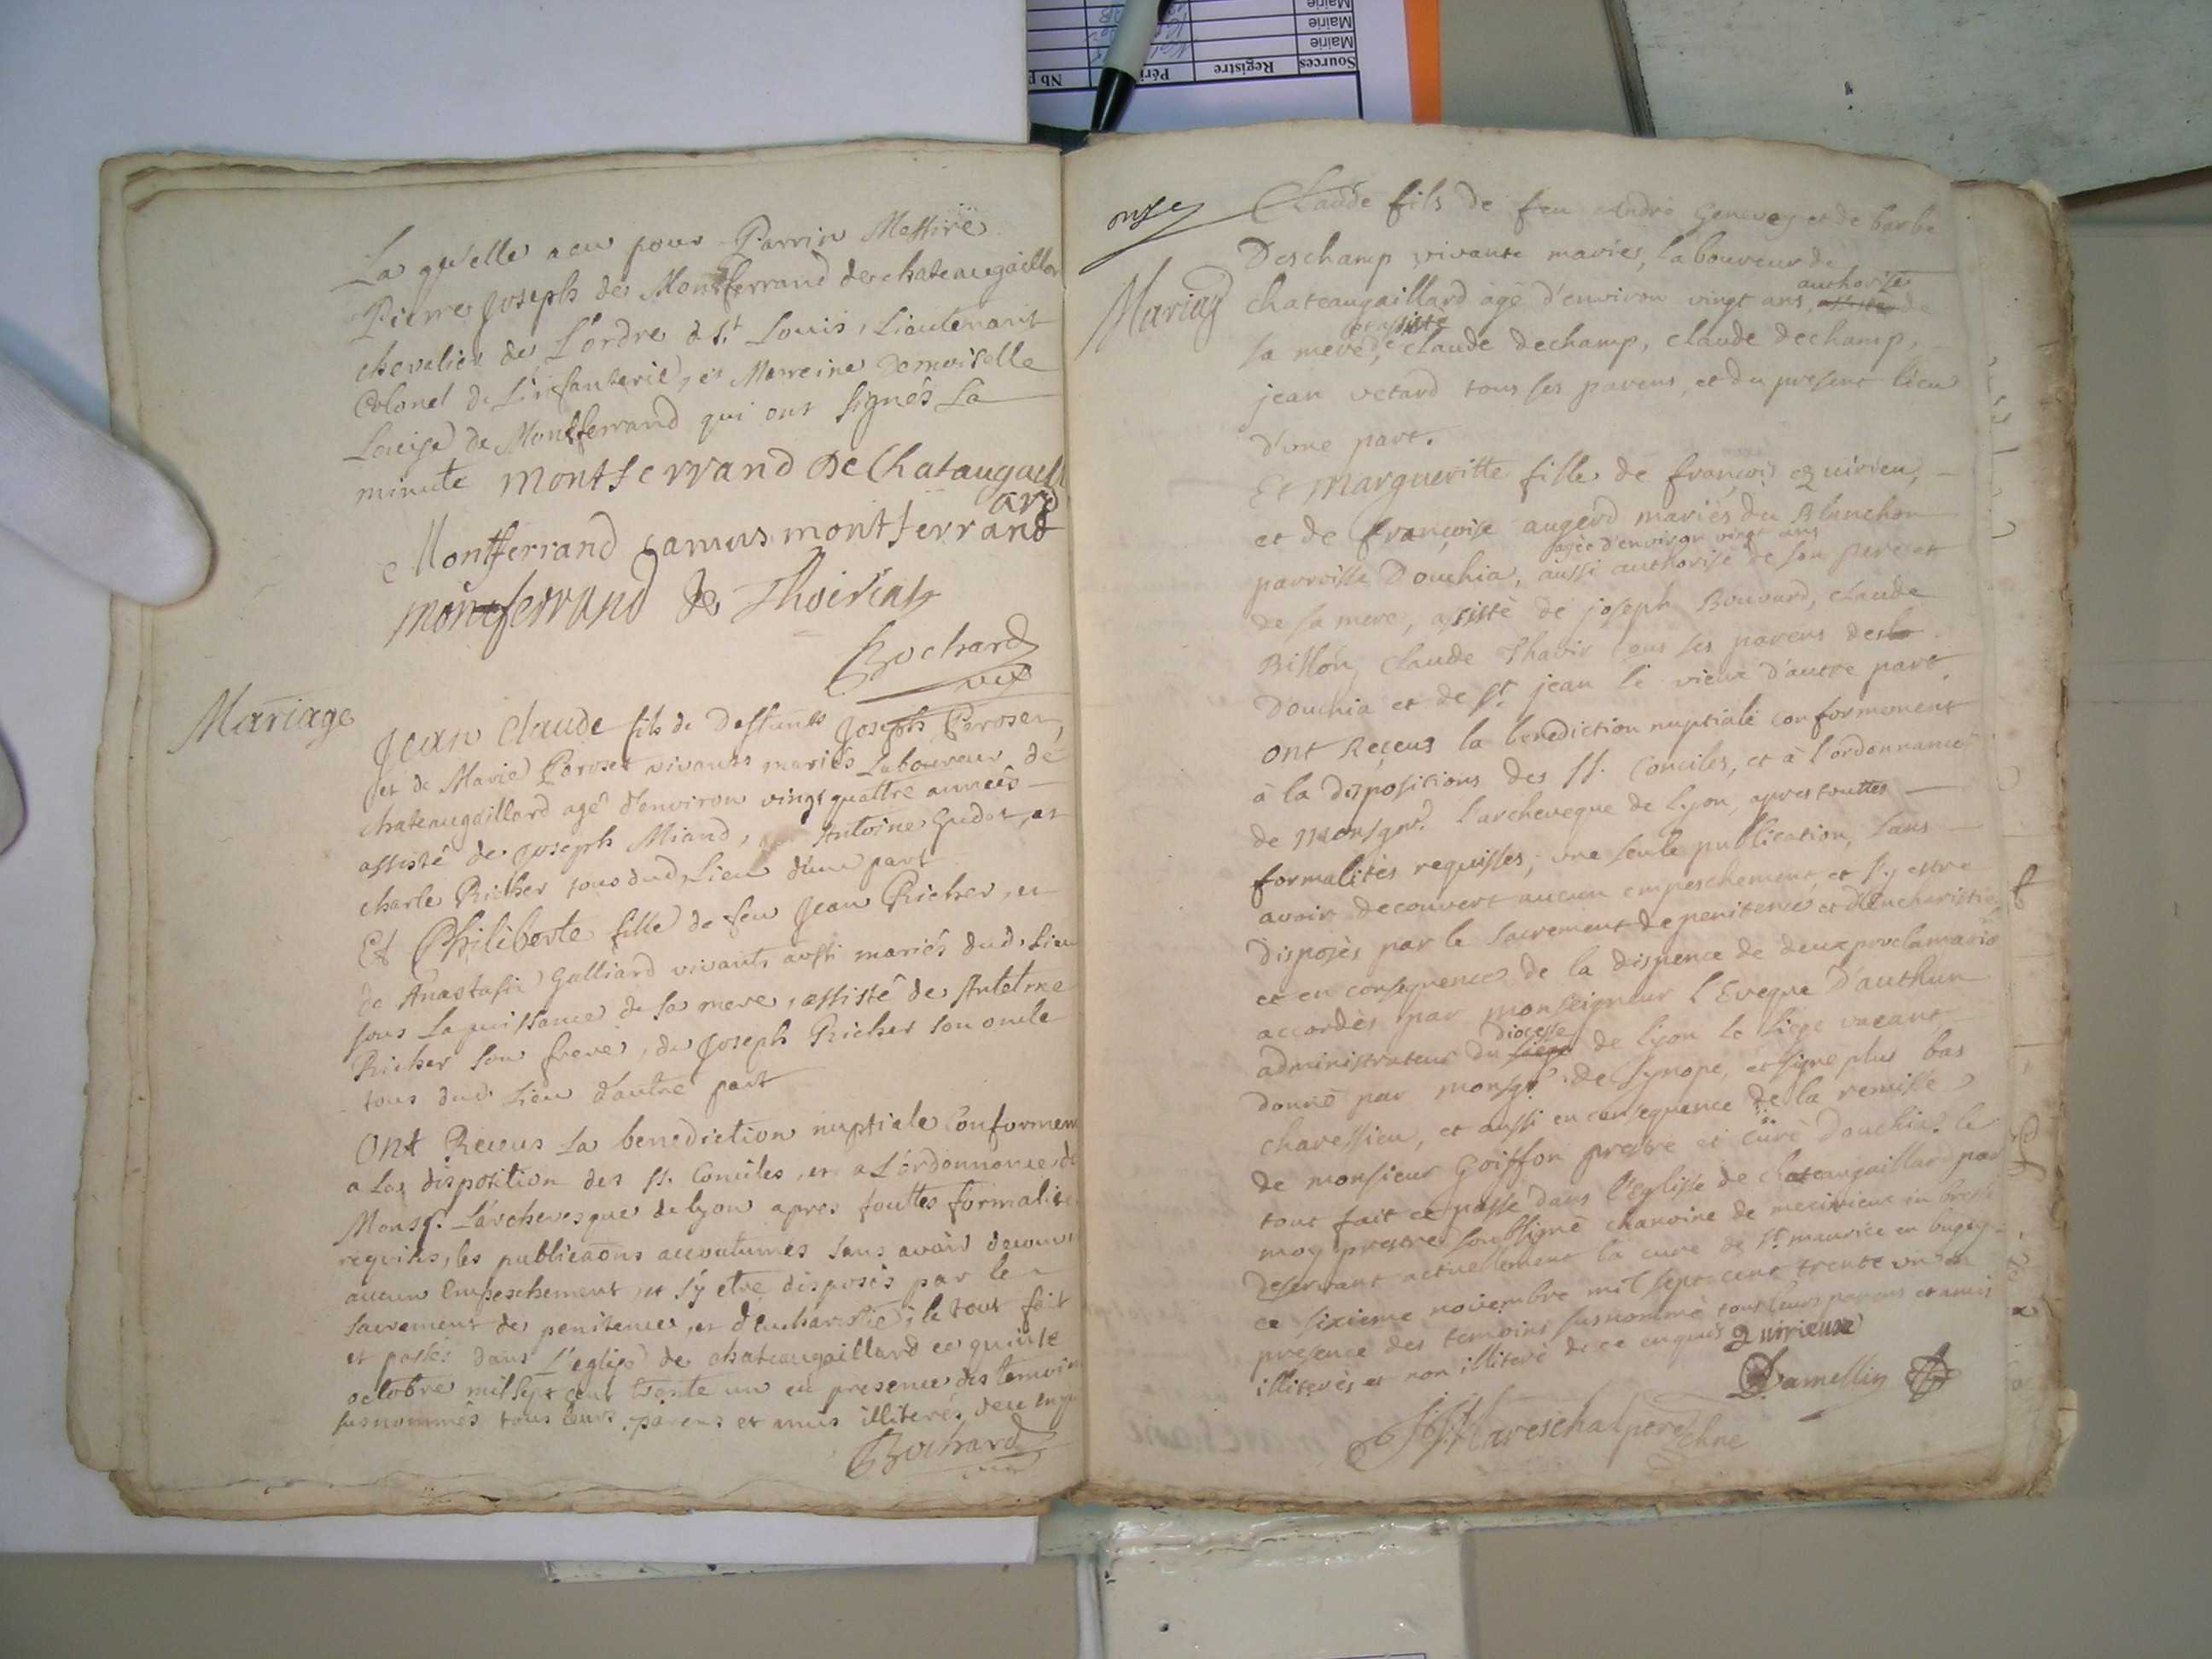 La qu'elle a eu pour Parrin Messire
Pierre Joseph de Montferrand de chateaugaillar
chevalier de L'ordre de St. Louis, Lieutenant
Colonel de L'infanterie, et Marreine Demoiselle
Loüise de Montferrand qui ont signés La
minute Montferrand De Chataugaill
ard
Montferrand camus montferrand
montferrand de Thoiriat
Bochard
Mariage
Jean Claude fils de deffunts Joseph Peroset,
et de Marie Peroset vivants mariés Laboureur de
chateaugaillard agé d'environ vingt quattre années
assisté de Joseph Miand, Antoine Gudet, et
charle Richer tous dud. Lieu d'une part
Et Philiberte fille de feu Jean Richer, et
de Anastasie Galliard vivants aussi mariés dud. Lieu
sous La puissance de sa mere, assisté de Antelme
Richer son frere, de Joseph Richer son oncle
tous dud. Lieu d'autre part
Ont Receus La benediction nuptiale Conformem
a La disposition des St. Conciles, et a L'ordonnance de
Monsgr. L'archevesque de lyon apres touttes formalite
requises, les publicaõns accoutumés sans avoir decouv
aucun Empeschement, et s'y etre disposés par le
sacrement de penitence, et d'eucharistie; le tout fait
et passés dans L'eglise de chateaugaillard ce quinze
octobre mil sept cent trente un en presence des temoin
susnommés tous leurs parens et amis illiterés, de ce enq
Bochard
onze
Claude fils de feu andré Genevey et de barbe
Deschamp vivants mariés, laboureur de
Mariag
authorisé
chateaugaillard agé d'environ vingt ans, assisté de
et assisté
sa mere, de claude dechamp, claude dechamp,
jean vetard tous ses parens, et du present lieu
d'une part.
Et Margueritte fille de françois quirieu,
et de françoise augerd mariés du Blanchon
agée d'environ vingt ans
parroisse Douchia, aussi authorisé de son pere et
de sa mere, assisté de joseph Bouvard, claude
Billon, claude Thavir tous ses parens de
Douchia et de St. jean le vieux d'autre part,
ont Reçeus la benediction nuptiale conformement
à la dispositions des SS. Conciles, et à l'ordonnance
de Monsgnr. l'archeveque de lyon, apres touttes
formalités requisses, une seule publication, sans
avoir decouvert aucun empeschement, et s'y estre
disposés par le sacrement de penitence et d'Eucharistie
et en consequence de la dispence de deux proclamatio
accordés par monseigneur l'Eveque D'authun
diocesse
administrateur du siege de lyon le siege vacant,
donné par monsgr. de synope, et signe plus bas
charessieu, et aussi en consequence de la remisse
de monsieur Goiffon prestre et curé Douchia le
tout fait et passe dans l'eglisse de chateaugaillard par
moy prestre soubsigné chanoine de meximieux en bresse
deservant actuellement la cure de St. maurice en bugey
ce sixieme novembre mil sept cent trente un en
presence des temoins susnommé tous leurs parens et amis
illiterés et non illiteré de ce enquis quirieux
Damellin
Mareschal pere